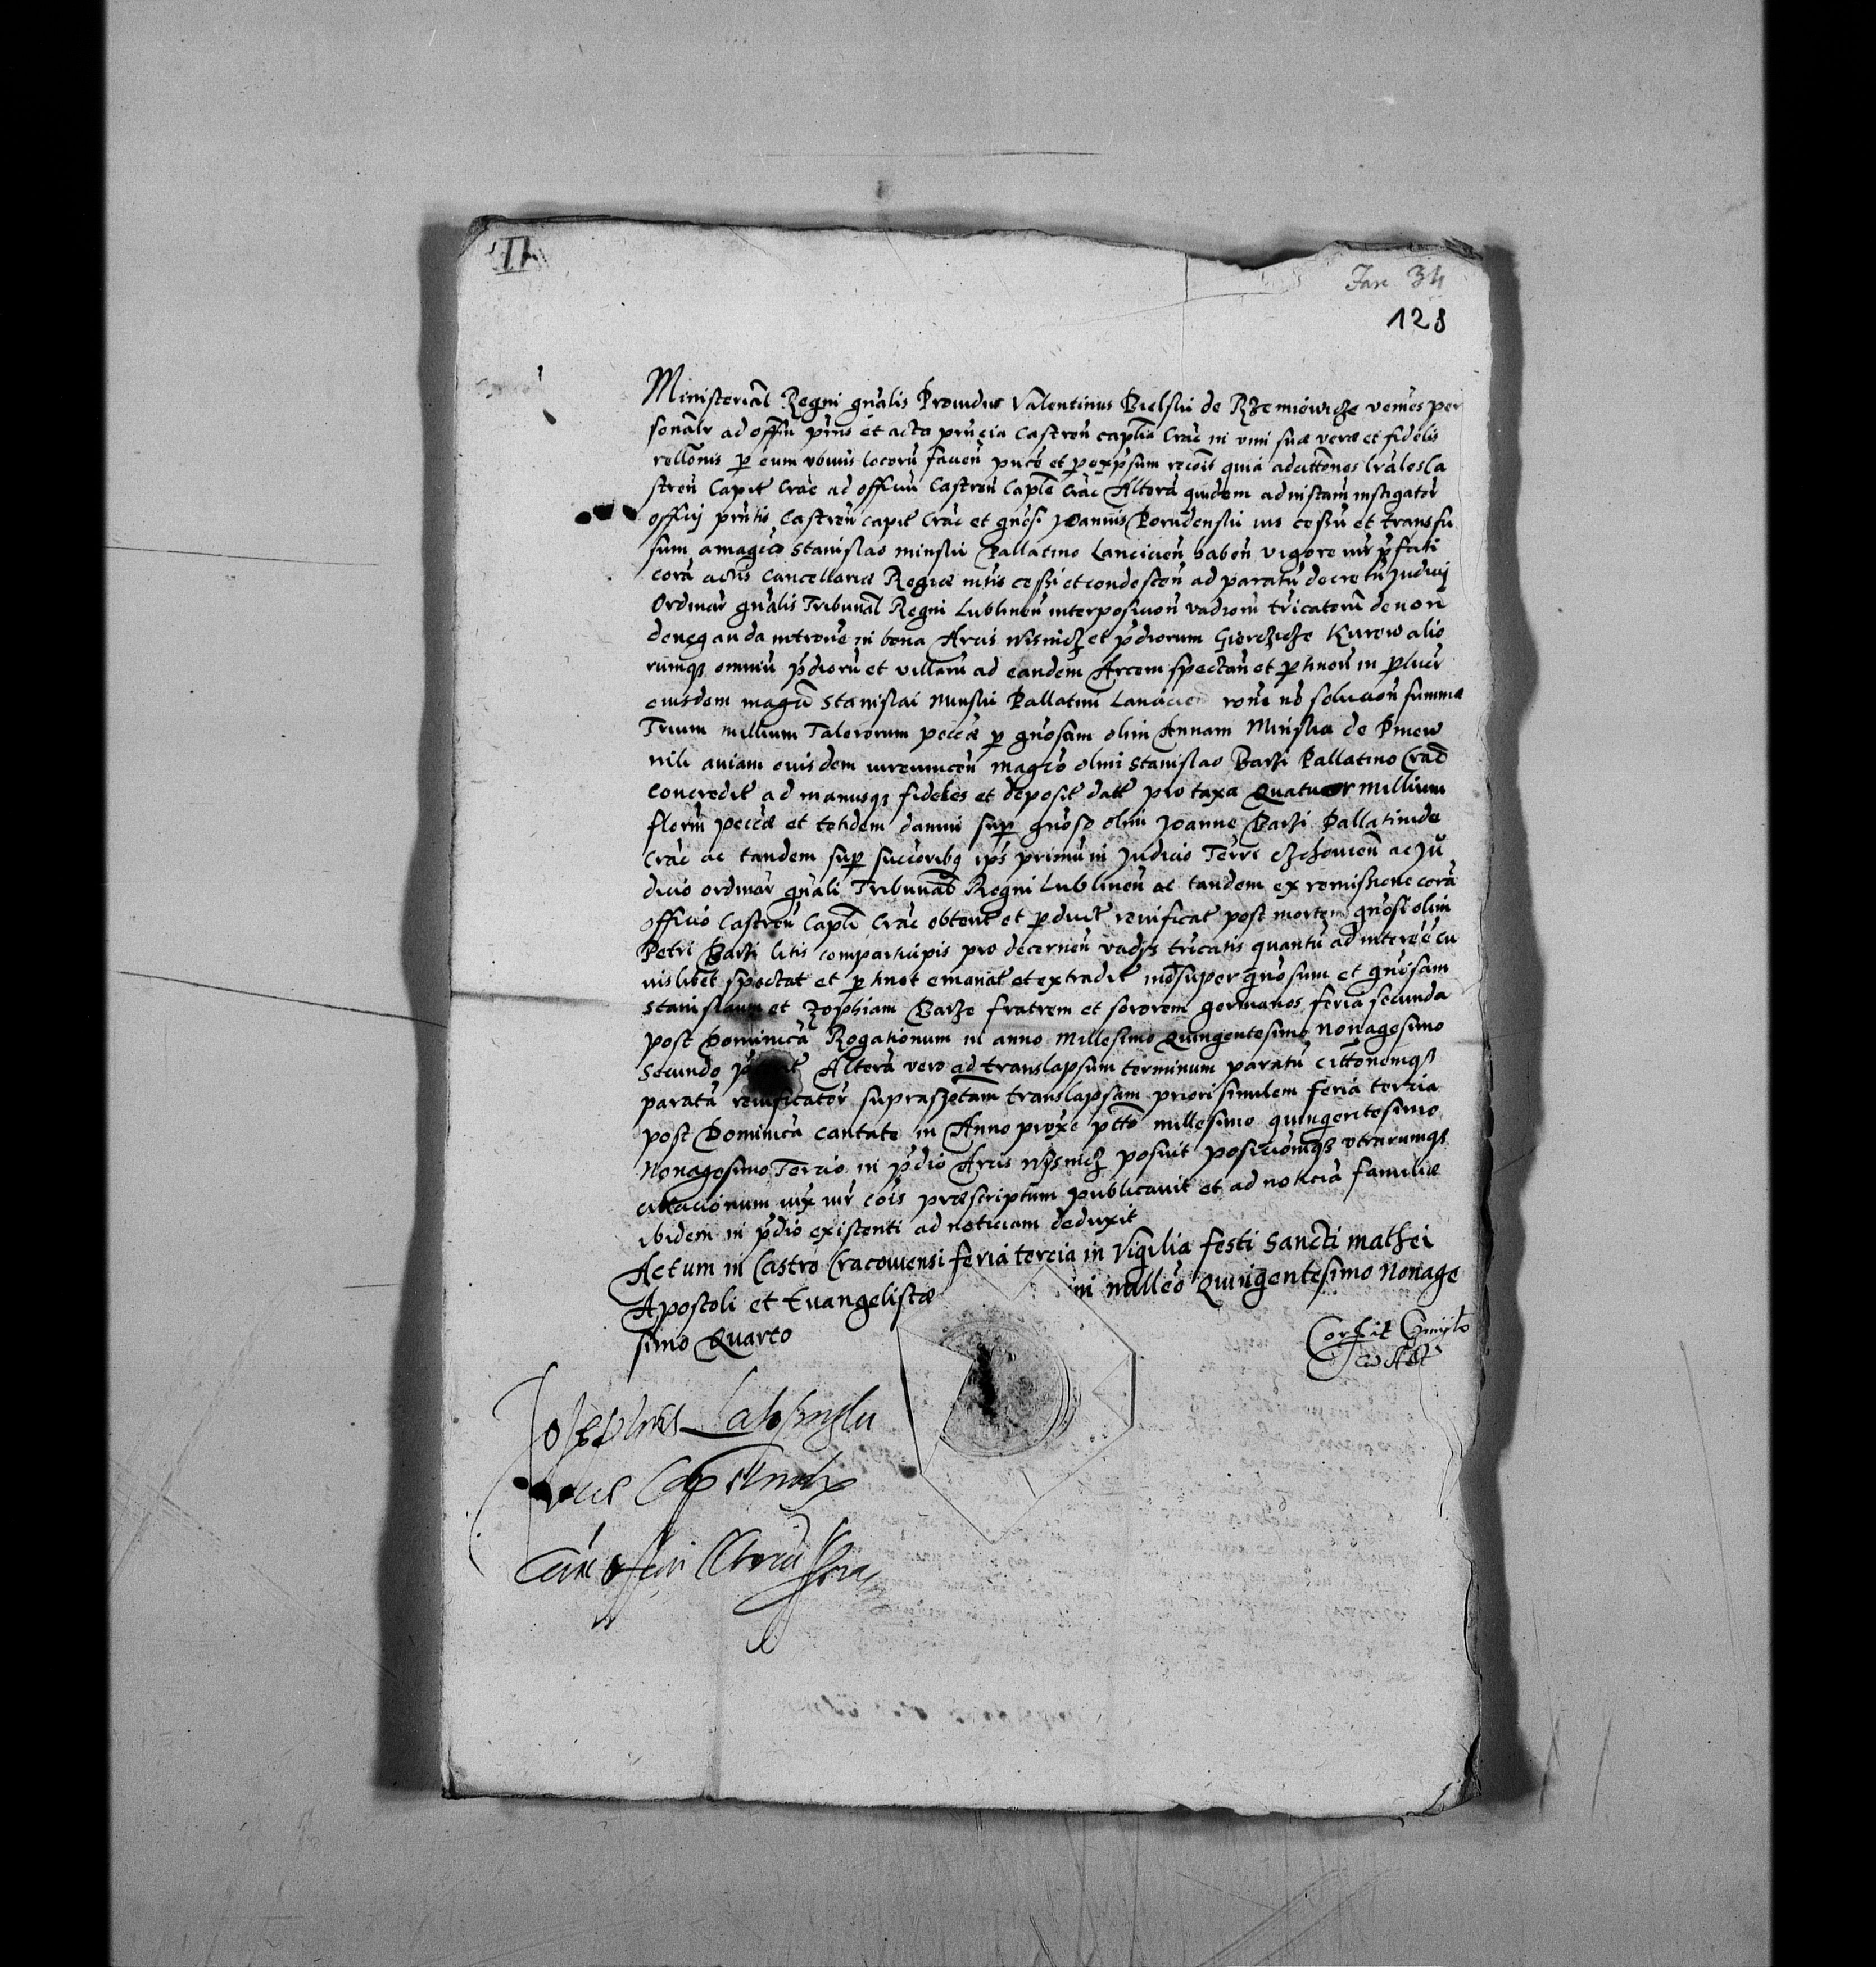 II
Jan 34
128
Ministeriał Regni gnālis Prouidus Valentinus Bielski de Rzemiéwicze veniēs per
sonalr ad offm pñs et acta pñcia Castreñ caplia Crac in vim suæ veræ et fidelis
rellonis p eum vbiuis locorũ facieñ pñce et p expssum recoīt quia ad cittones lrales Ca
streñ Capit Crac ad officiũ Castreñ Caple Crac Alterā quidem ad instam instigator
officij pñtis Castreñ capit Crac et gnosi Joannis Porudenski ius cessũ et transfu
sum a magco Stanislao minski Pallatino Lancicieñ habeñ vigore iur pfati
corā actis Cancellariæ Regiæ mtis cessi et condesceñ ad paratũ decretũ Judicij
Ordinar gnalis Tribunal Regni Lublineñ interposicioñ vadiorũ tricatorũ de non
deneganda introne in bona Arcis Wisnicz et pdiorum Gierczicze Kurow alio
rumqz omniũ pdiorũ et villarũ ad eandem Arcem spectañ et ptineñ in
eiusdem magci Stanislai Minski Pallatini Lancicien rone no solucioñ summæ
Trium millium Talerorum peccæ p gnosam olim Annam Minska de Pniew
nili auiam eiusdem magco olim Stanislao Barzi Pallatino Crac
concredit ad manusqz fideles et deposit datt pro taxa Quatuor millium
florñ peccæ et totidem damni sup gnoso olim Joanne Barzi Pallatinide
Crac ac tandem sup succoribq ips primũ in Judicio Terre Czchouieñ ac Ju
dicio ordinar gnali Tribunal Regni Lublineñ ac tandem ex remissione corā
officio Castreñ Caple Crac obtent et pduct reuificat post mortem gnosi olim
Petri Barzi litis comparticipis pro decerneñ vadys tricatis quantũ ad interēē cu
uislibet spectat et ptinet emanat et extradit super gnosum et gnosam
Stanislaum et Zophiam Barze fratrem et sororem germanos feria secunda
post Dominicā Rogationum in anno Millesimo Quingentesimo Nonagesimo
Secundo Alterā vero ad translapsum terminum paratũ cittonemqz
paratā reuificator suprasctam translapsam priori similem feria tercia
post Dominicā cantate in Anno proxe ptto millesimo quingentesimo
Nonagesimo Tercio in pdio Arcis Wysnicz posuit posicionēqz vtrarumqz
cittacionum iux iur cois præscriptum publicauit et ad noticiā familiæ
ibidem in pdio existenti ad noticiam deduxit
Actum in Castro Cracouiensi feria tercia in Vigilia festi Sancti mathei
Apostoli et Euangelistæ in milleo Quingentesimo Nonage
simo Quarto